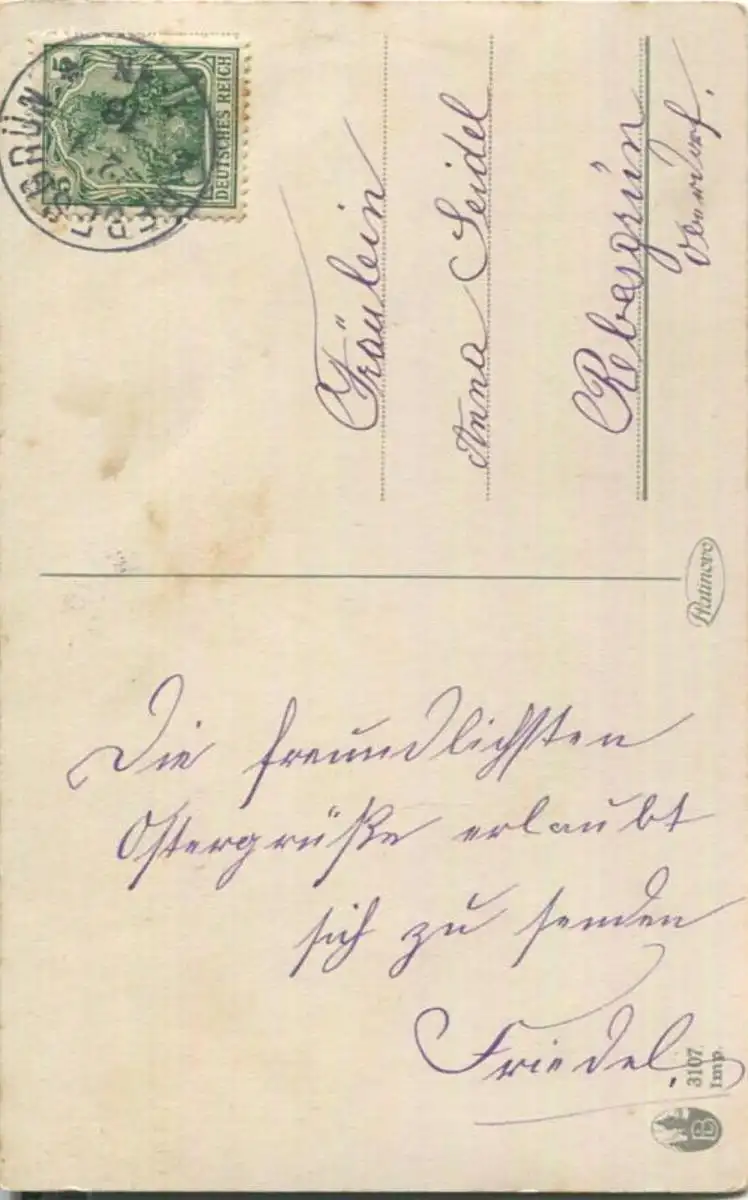 5
DEUTSCHES REICH
Fräulein
Anna Seidel
Rebesgrün
Oberdorf.
Platinovo
Die freundlichsten
Ostergrüße erlaubt
sich zu senden
Friedel.
3107.
Imp.